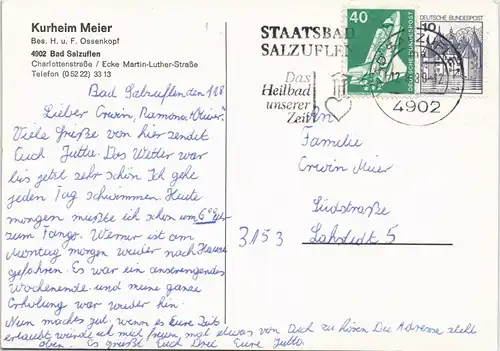 Kurheim Meier
Bes. H. u. F. Ossenkopf
4902 Bad Salzuflen
Charlottenstraße / Ecke Martin-Luther-Straße
Telefon (0 52 22) 33 13
Bad Salzuflen den 11.8
Lieber Erwin, Ramona + Oliver
Viele Grüße von hier sendet
Euch Jutta. Das Wetter war
bis jetzt sehr schön. Ich gehe
jeden Tag schwimmen. Heute
morgen mußte ich schon um 6⁰⁰ Uhr
zum Fango. Werner ist am
Montag morgen wieder nach Hause
gefahren. Es war ein anstrengendes
Wochenende und meine ganze
Erholung war wieder hin.
Nun machts gut, wenn es Eure Zeit
erlaubt würde ich mich freuen mal etwas von Euch zu hören. Die Adresse steht
oben. Es grüßt Euch Drei Eure Jutta.
STAATSBAD
SALZUFLEN
Das
Heilbad
unserer
Zeit
40
DEUTSCHE BUNDESPOST
10
DEUTSCHE BUNDESPOST
4902
An
Familie
Erwin Meier
Südstraße
3153 Lahstedt 5